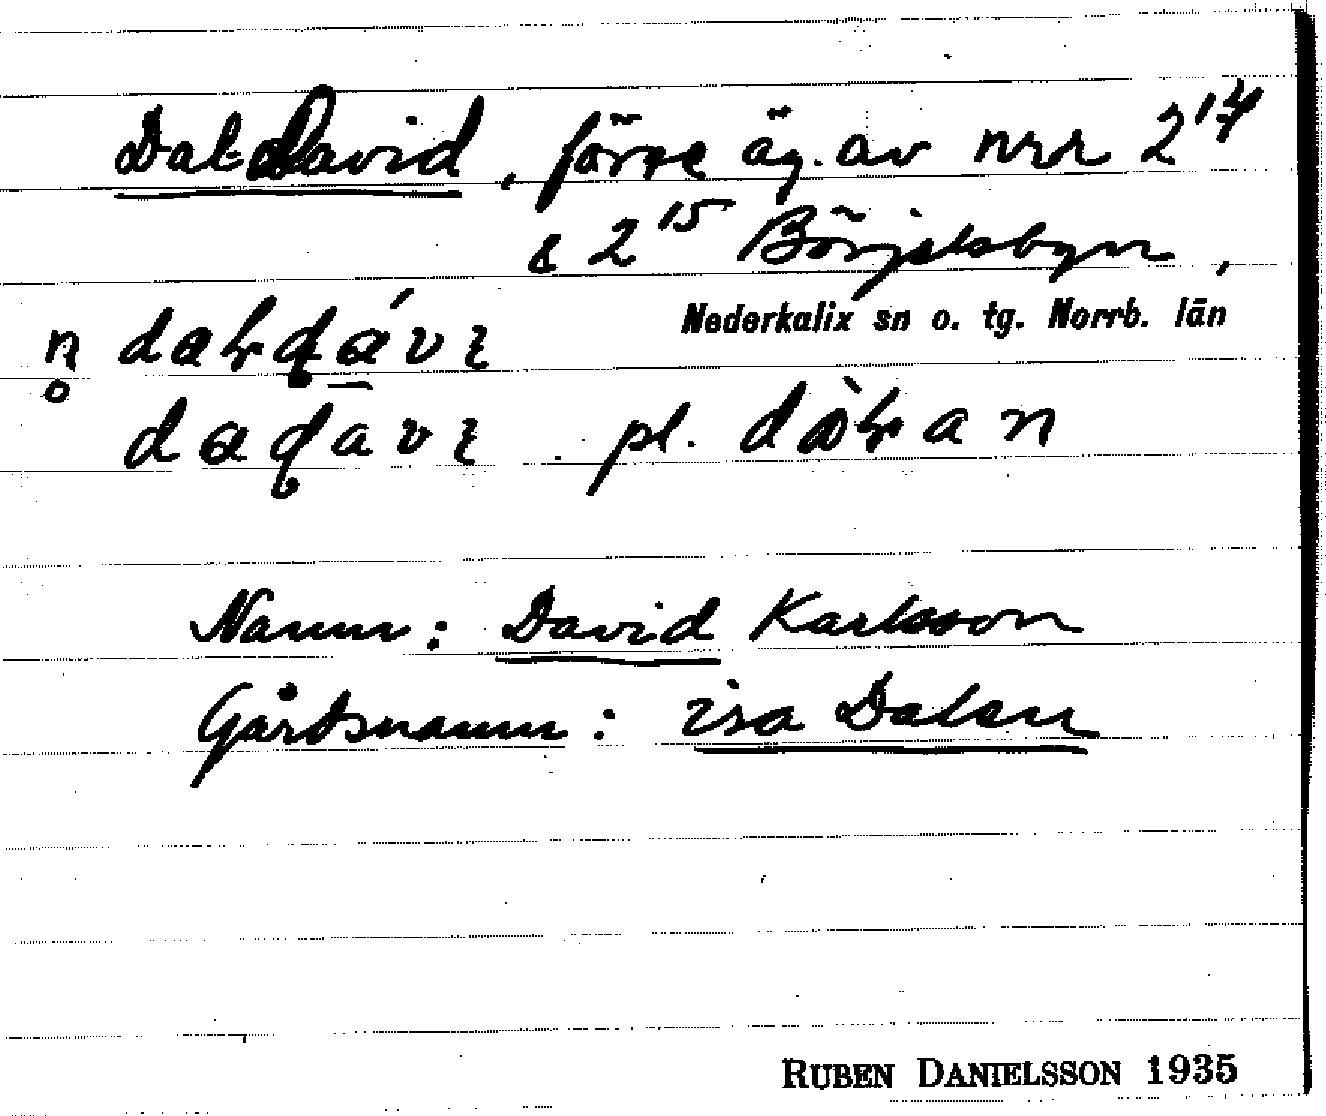 Dal-David, förre äg. av nrr 2¹⁴
& 2¹⁵ Börjelsbyn,
Nederkalix sn o. tg. Norrb. län
pl.
Namn: David Karlsson
Gårdsnamn: isa Dalen
RUBEN DANIELSSON 1935